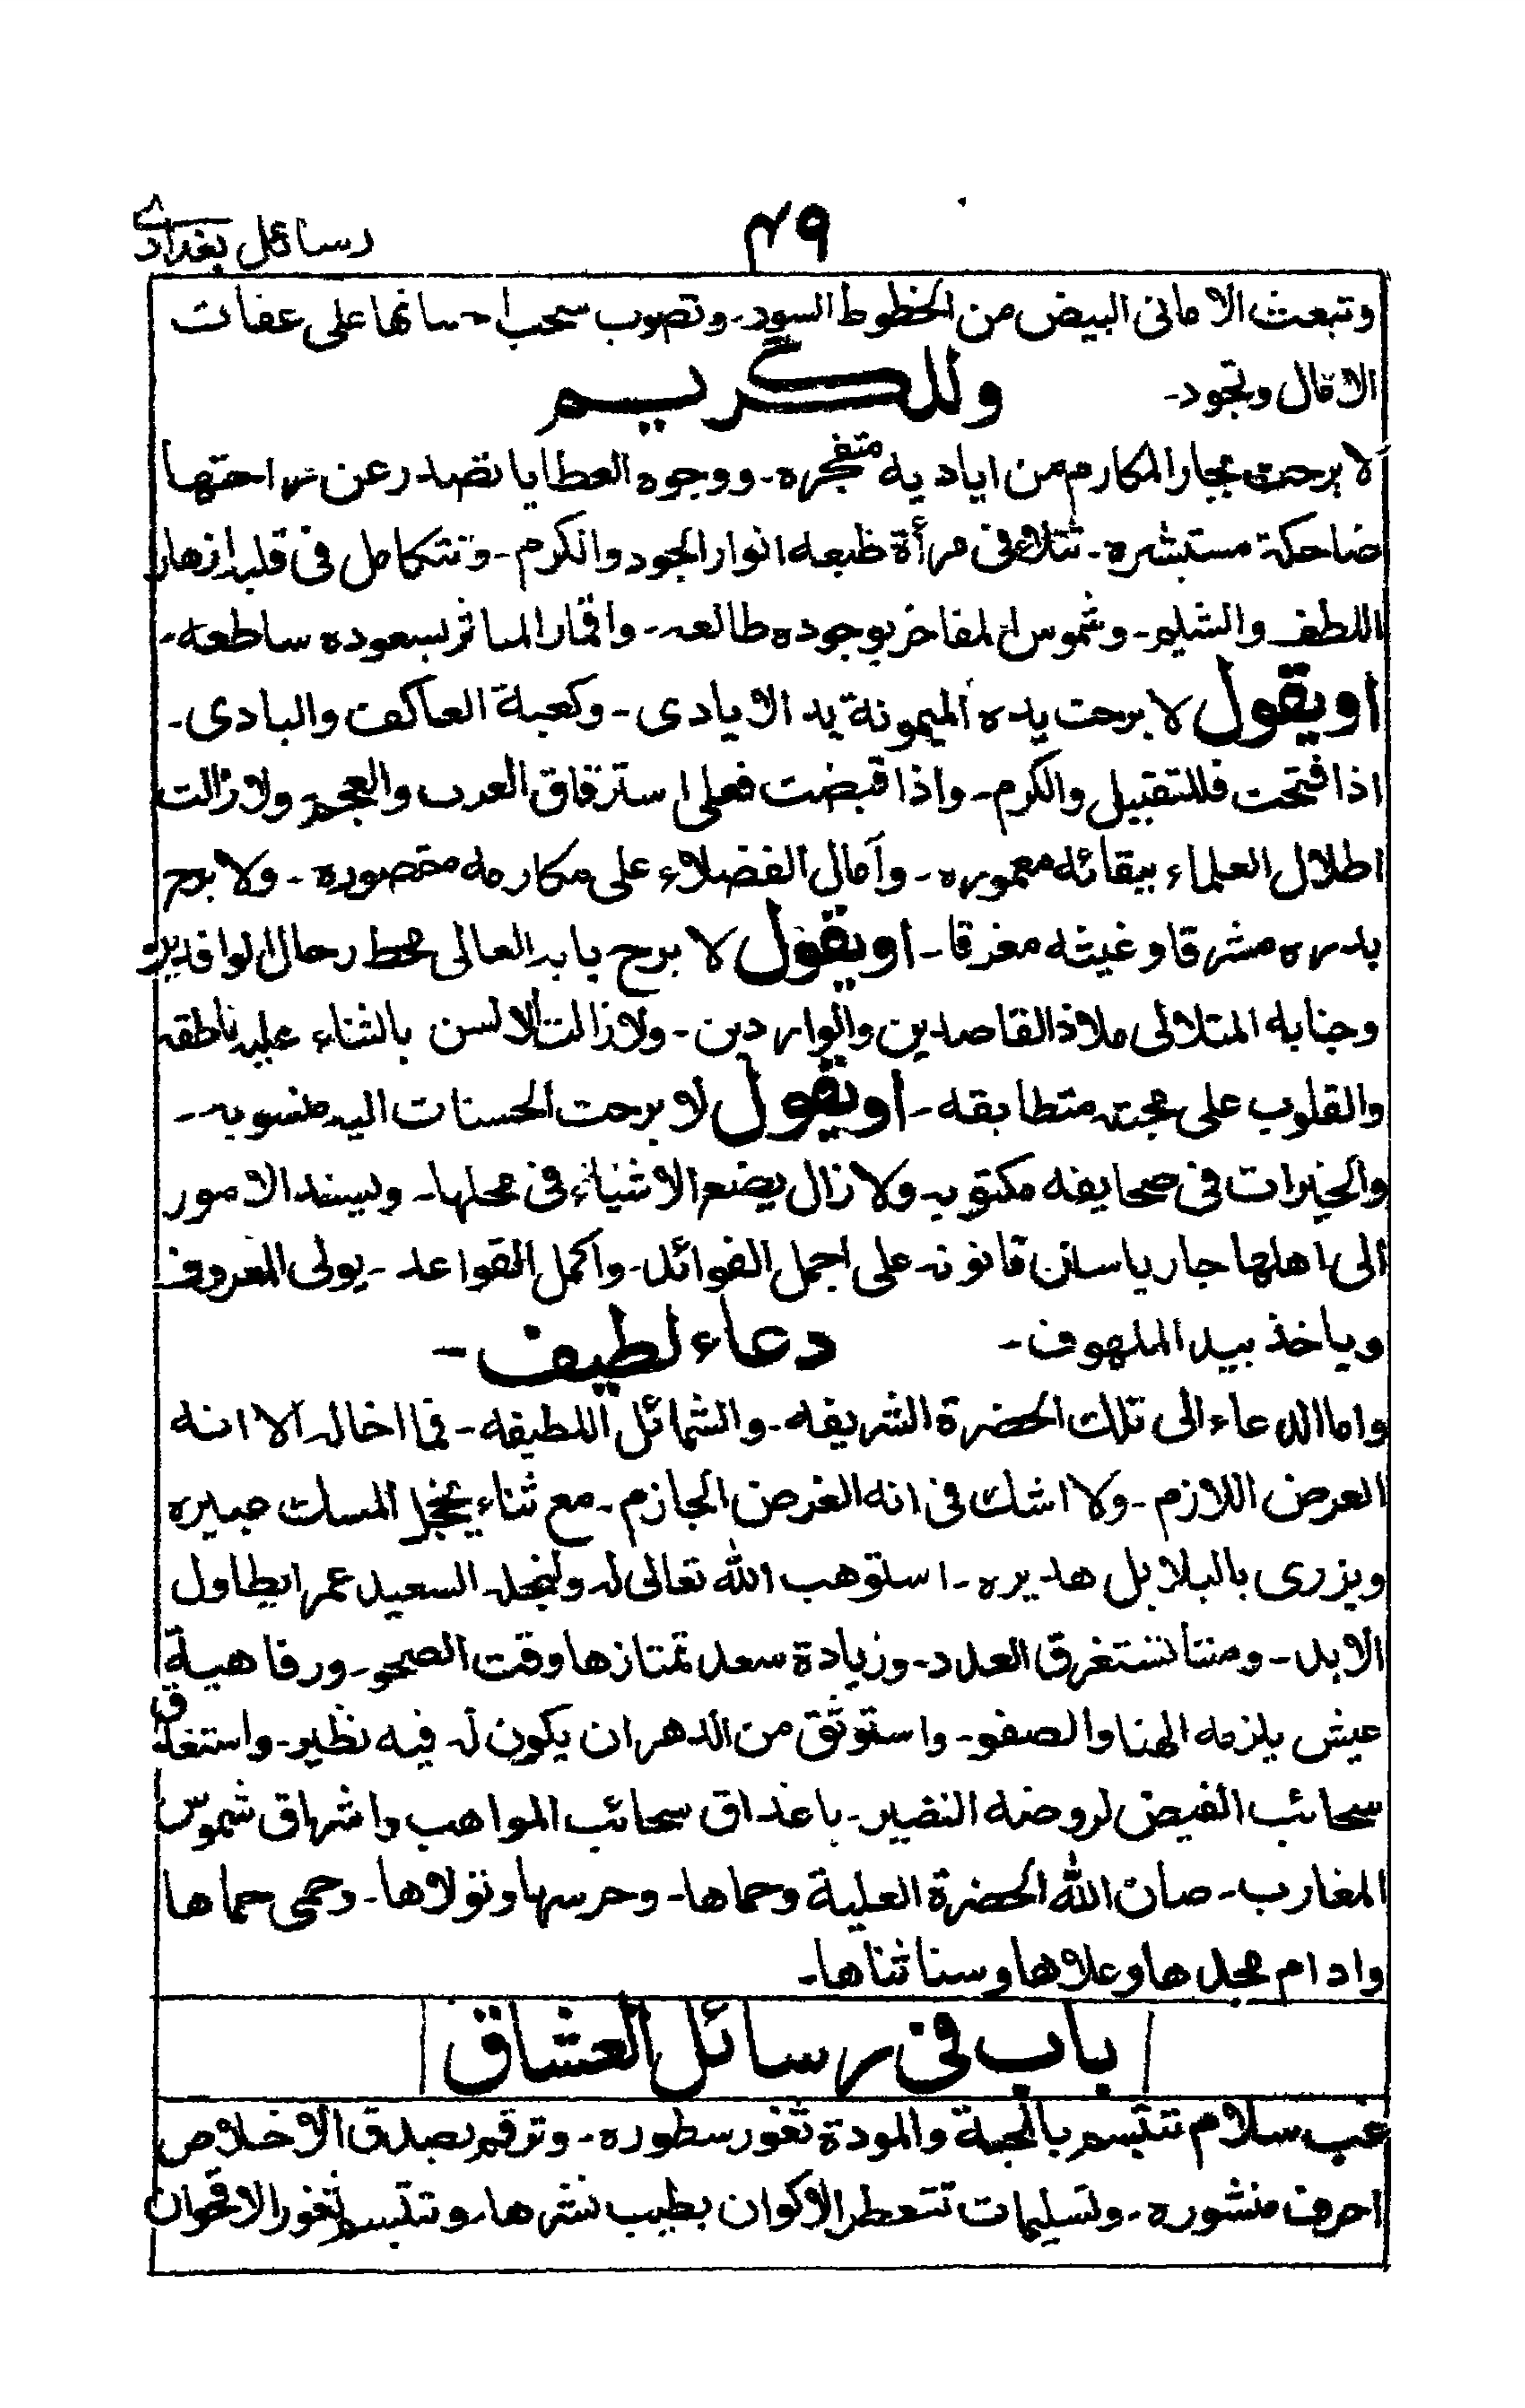 رسائل بغدادی
۴۹
وتبعث الامانى البيض من الخطوط السود۔ وتصوب سحب احسانها على عفات
الامال وتجود۔
وللكريم
لا برحت بحار المكارم من اياديه متفجره۔ ووجوه العطايا تصدر عن راحتها
ضاحكة مستبشره۔ تتلاء فى مرأة طبعه انوار الجود والكرم۔ وتتكامل فى قلبه ازهار
اللطف والشيم۔ وشموس المفاخر بوجوده طالعه۔ واقمار الماثر بسعوده ساطعه۔
او يقول لا برحت يده الميمونة يد الايادى۔ وكعبة العاكف والبادى۔
اذا فتحت فللتقبيل والكرم۔ واذا قبضت فعلى استرقاق العرب والعجم ولا زالت
اطلال العلماء ببقائه معموره۔ وآمال الفضلاء على مكارمه مقصوره۔ ولا برح
بدره مشرقا وغيثه مغرقا۔ او يقول لا برح بابه العالى محط رحال الوافدين
وجنابه المتلالى ملاذ القاصدين والواردين۔ ولا زالت الالسن بالثناء عليه ناطقه
والقلوب على محبته متطابقه۔ او يقول لا برحت الحسنات اليه منسوبه۔
والخيرات فى صحايفه مكتوبه۔ ولا زال يضع الاشياء فى محلها۔ ويسند الامور
الى اهلها جاريا سنن قانونه على اجمل الفوائد۔ واكمل القواعد۔ يولى المعروف
وياخذ بيد الملهوف۔
دعاء لطيف۔
واما الدعاء الى تلك الحضرة الشريفه۔ والشمائل اللطيفه۔ فما اخاله الا انه
العرض اللازم۔ ولا اشك فى انه الغرض الجازم۔ مع ثناء يخجل المسك عبيره
ويزرى بالبلابل هديره۔ استوهب الله تعالى له ولنجله السعيد عمرا يطاول
الابد۔ ومننا تستغرق العدد۔ وزيادة سعد تمتازها وقت الصحو۔ ورفاهية
عيش يلزمه الهنا والصفو۔ واستوثق من الدهر ان يكون له فيه نظير۔ واستغدق
سحائب الفيض لروضه النضير۔ باغداق سحائب المواهب واشراق شموس
المغارب۔ صان الله الحضرة العلية وحماها۔ وحرسها وتولاها۔ وحمى حماها
وادام مجدها وعلاها وسنا ثناها۔
باب فى رسائل العشاق
غب سلام تتبسم بالمحبة والمودة ثغور سطوره۔ وترقم بصدق الاخلاص
احرف منشوره۔ وتسليمات تتعطر الاكوان بطيب نشرها۔ وتتبسم ثغور الاقحوان